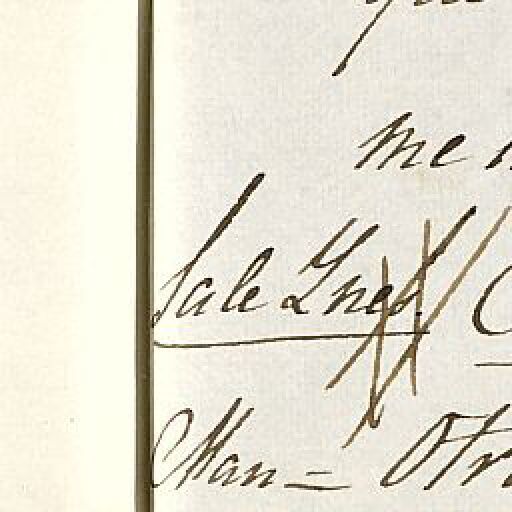 me
Sale Ynes.
Man = Otr